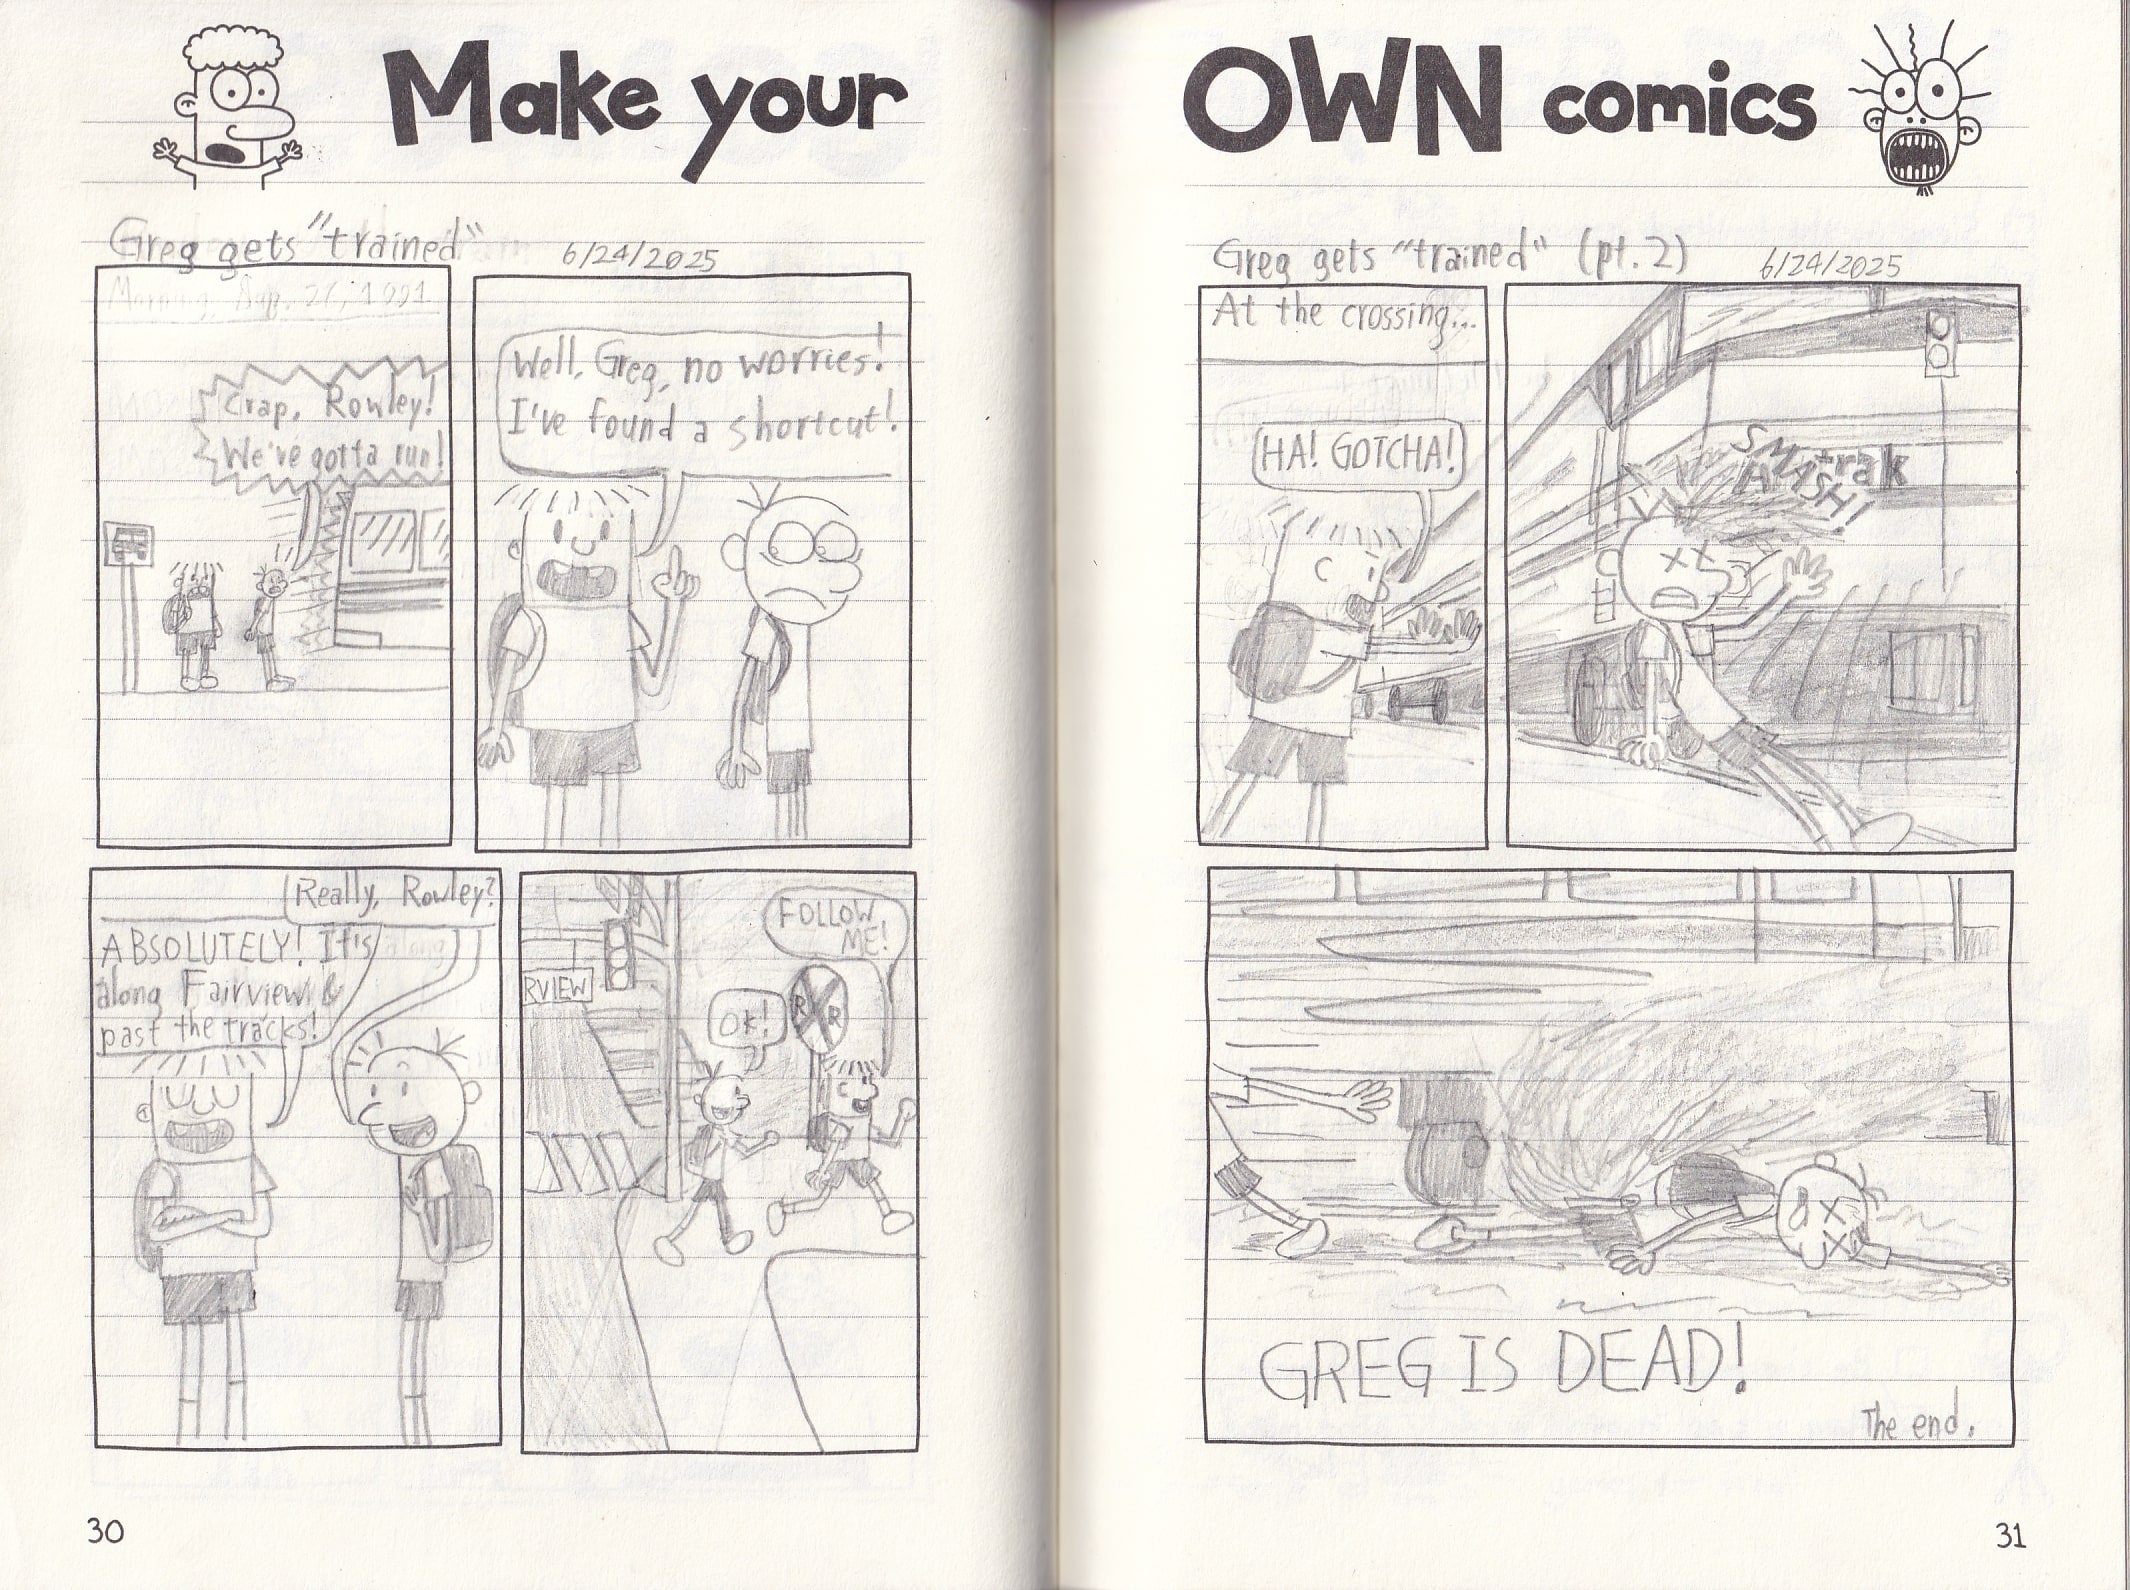 Make your
Greg gets "trained"
6/24/2025
Crap, Rowley!
We've gotta run!
Well, Greg, no worries!
I've found a shortcut!
Really, Rowley?
ABSOLUTELY! It's
along Fairview &
past the tracks!
RVIEW
OK!
FOLLOW
ME!
R R
30
OWN comics
Greg gets "trained" (pt.2)
6/24/2025
At the crossing...
HA! GOTCHA!
SMASH!
trak
GREG IS DEAD!
The end.
31